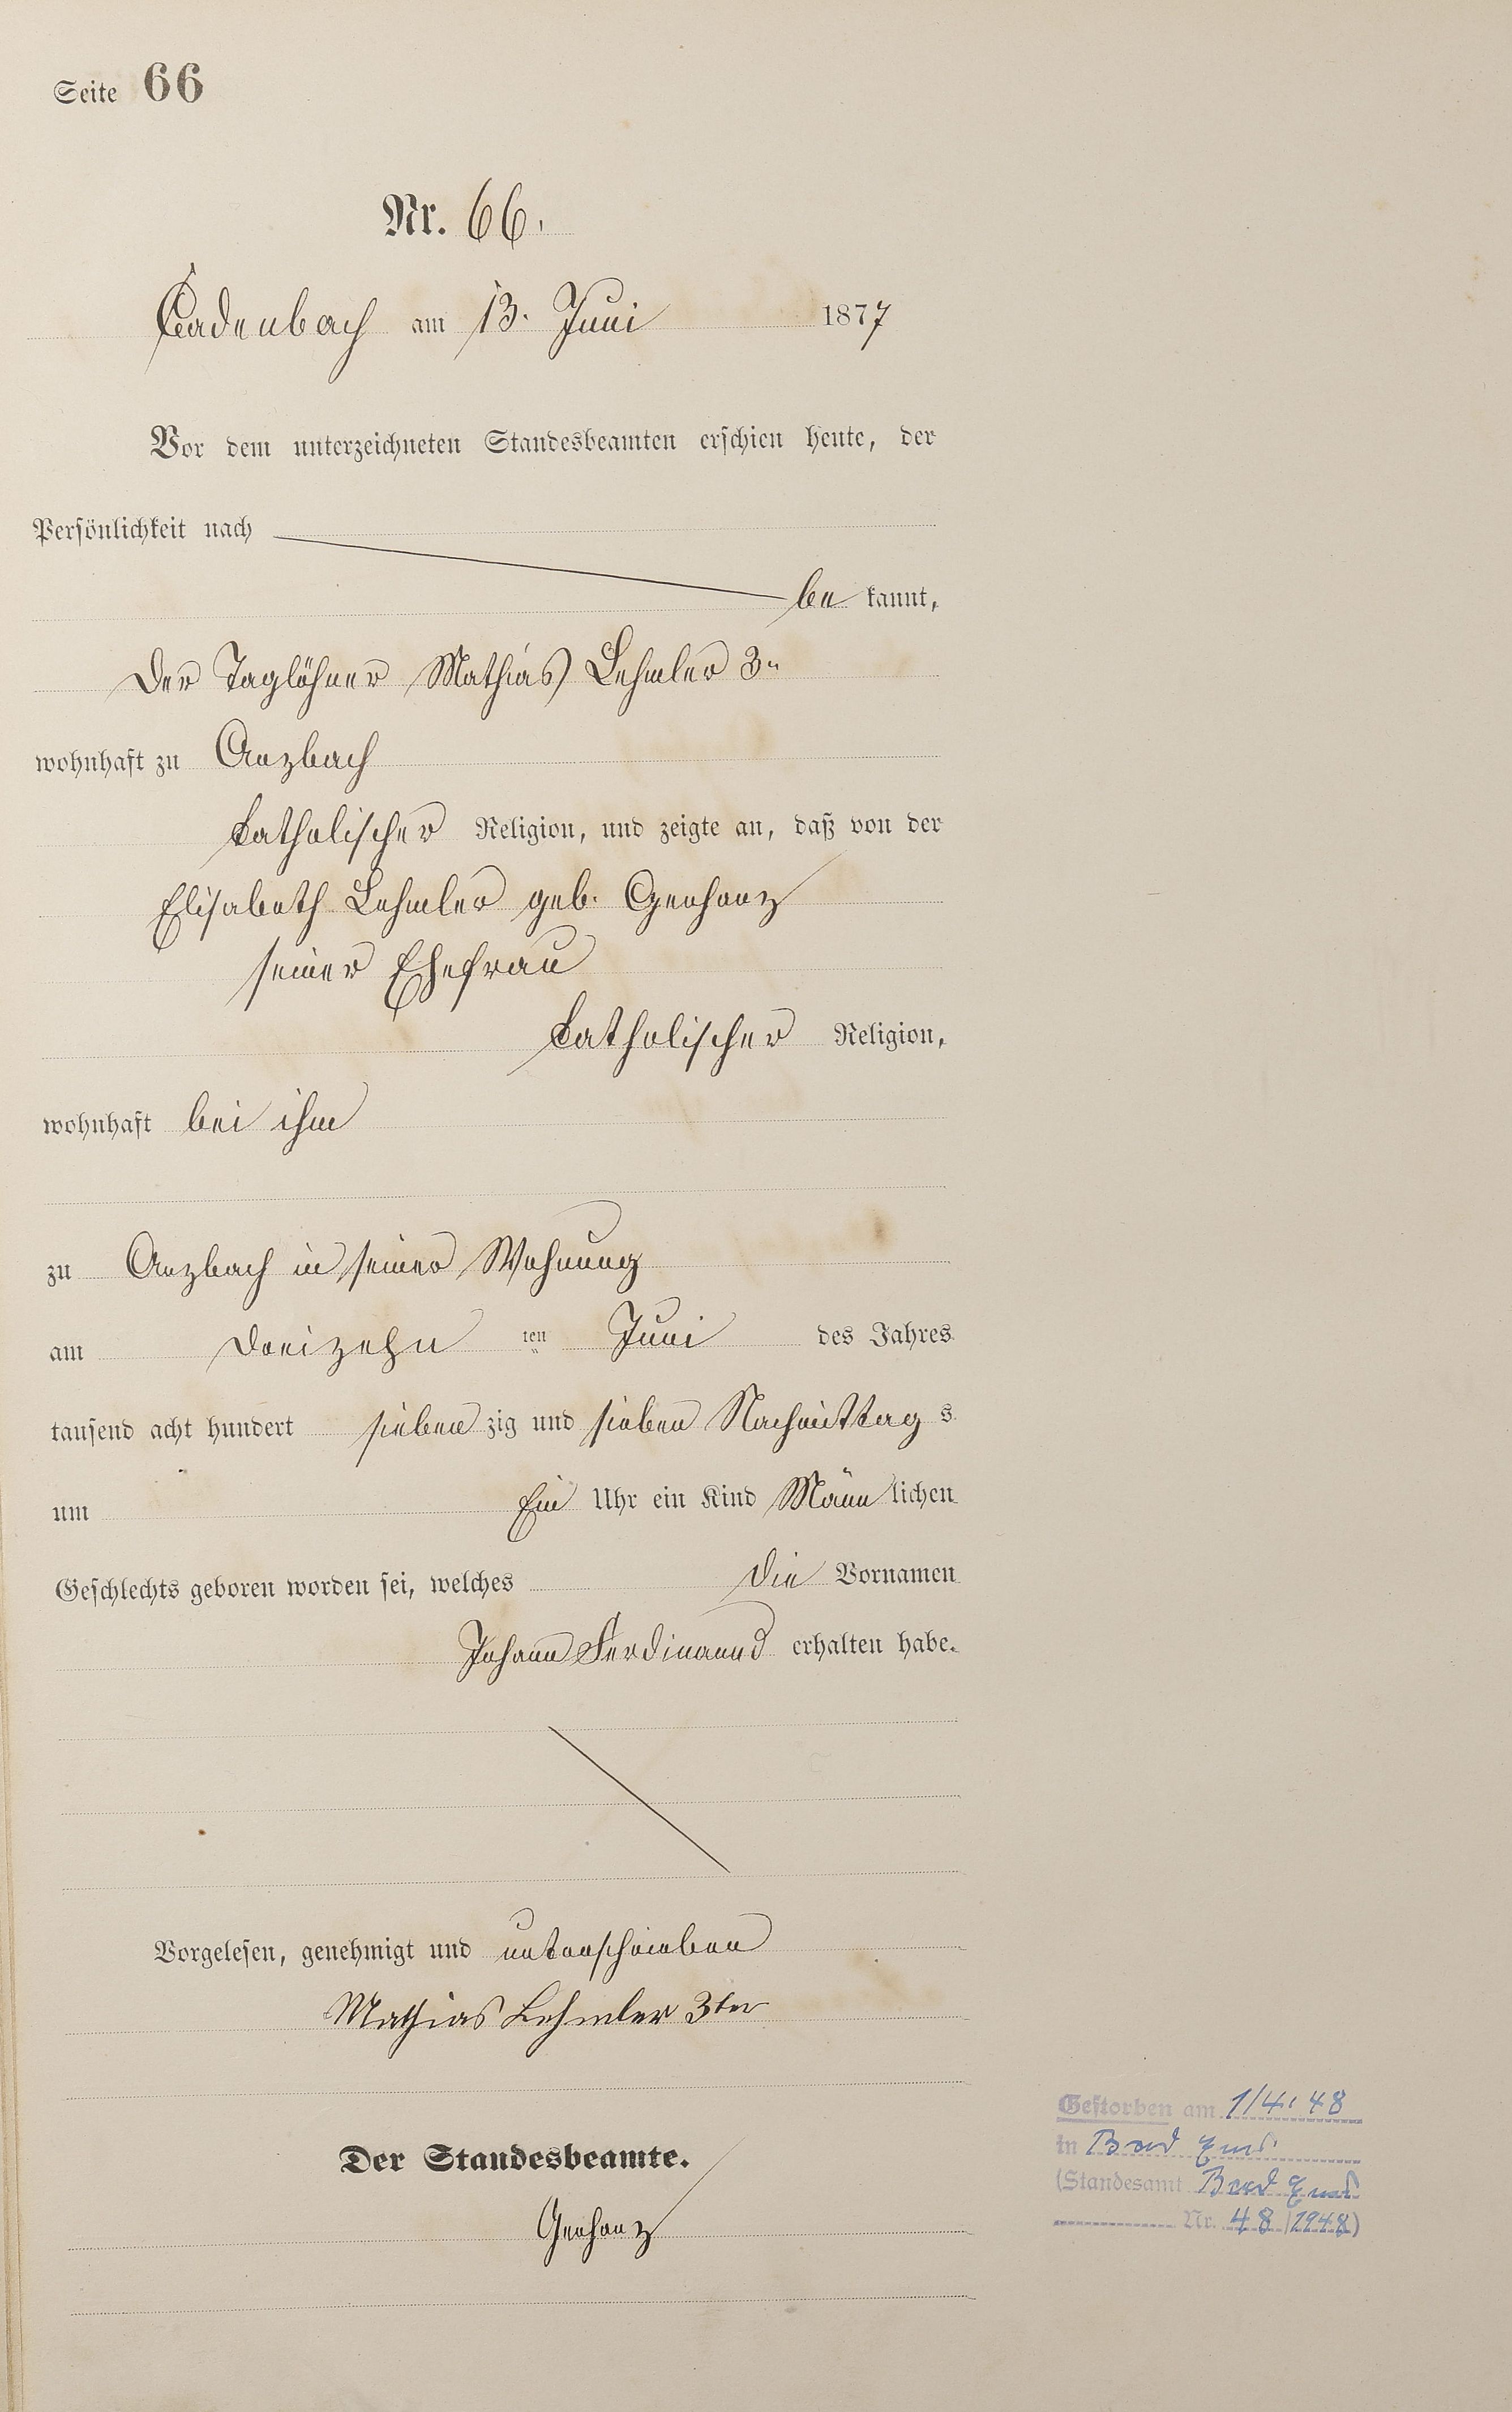 Seite 66
Nr. 66.
Cadenbach am 13. Juni 1877
Vor dem unterzeichneten Standesbeamten erschien heute, der
Persönlichkeit nach
be kannt,
der Taglöhner Mathias Lehmler 3r
wohnhaft zu Arzbach
katholischer Religion, und zeigte an, daß von der
Elisabeth Lehmler geb. Gerharz
seiner Ehefrau
katholischer Religion,
wohnhaft bei ihm
zu Arzbach in seiner Wohnung
am dreizehn ten Juni des Jahres
tausend acht hundert sieben zig und sieben Nachmittag s
um Ein Uhr ein Kind Männ lichen
Geschlechts geboren worden sei, welches die Vornamen
Johann Ferdinand erhalten habe.
Vorgelesen, genehmigt und unterschrieben
Mathias Lehmler 3ter
Der Standesbeamte.
Gerharz
Gestorben am 1/4.48
in Bad Ems.
(Standesamt Bad Ems
Nr. 48/1948)